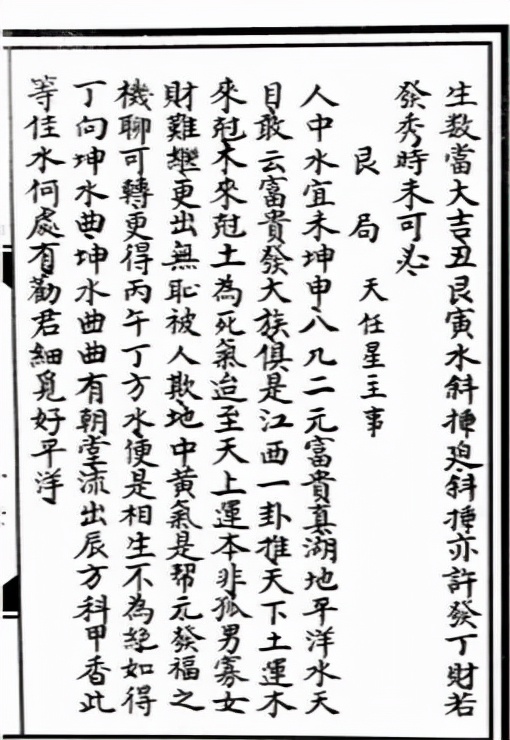 生数當大吉丑艮寅水斜揷斜揷亦許發丁財若
發秀時未可必
艮局 天任星主事
人中水宜未坤申八凡二元富貴真湖地平洋水天
目敢云富貴發大族俱是江西一卦推天下土運木
來尅木來尅土為死氣迨至天上運本非孤男寡女
財難繼更出無恥被人欺地中黃氣是幫元發福之
機聊可轉更得丙午丁方水便是相生不為絕如得
丁向坤水曲坤水曲曲有朝堂流出辰方科甲香此
等佳水何處有勸君細覓好平洋